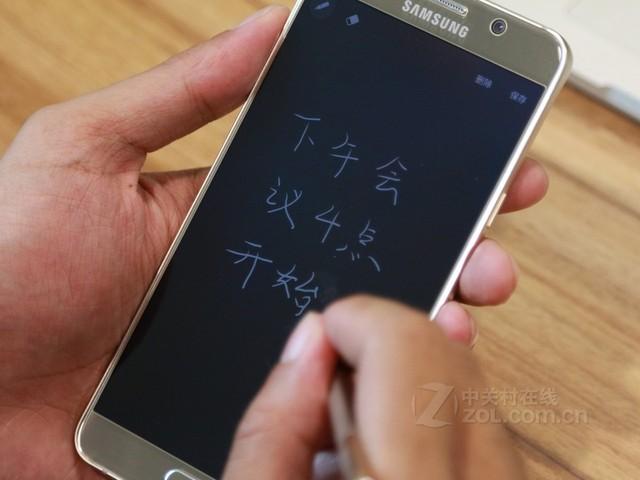 SAMSUNG
删除 保存
下午会
议4点
开始
中关村在线
ZOL.com.cn